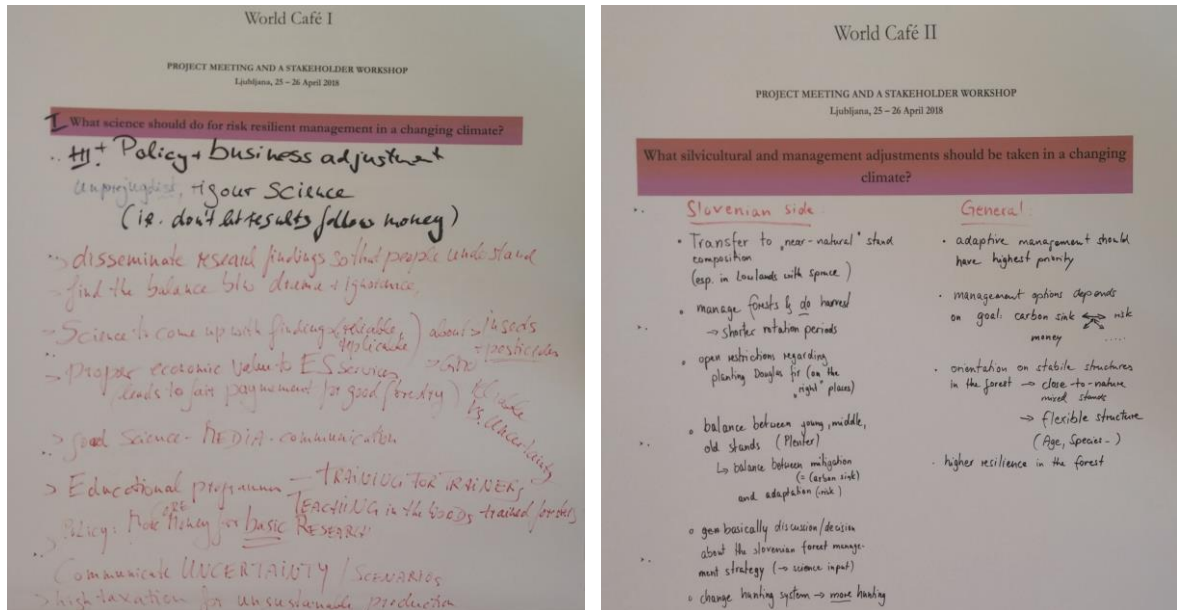 World Café I
PROJECT MEETING AND A STAKEHOLDER WORKSHOP
Ljubljana, 25 – 26 April 2018
I What science should do for risk resilient management in a changing climate?
Policy + business adjustment
rigour Science
(i.e. don't let results follow money)
disseminate findings so that people understand
find the balance btw + ignorance
Science to come up with findings (reliable, replicable) about > insects
+ pesticides
> GMO
> proper economic value to ES services
(leads to fair paynement for good forestry)
Reliable
vs. Uncertainty
> good Science - MEDIA - communication
> Educational programm — TRAINING FOR TRAINERS
TEACHING in the WOODS trained foresters
Policy: More Money for basic RESEARCH
Communicate UNCERTAINTY / SCENARIOS
> high taxation for unsustainable production
World Café II
PROJECT MEETING AND A STAKEHOLDER WORKSHOP
Ljubljana, 25 – 26 April 2018
What silvicultural and management adjustments should be taken in a changing
climate?
Slovenian side
• Transfer to „near-natural" stand
composition
(esp. in Lowlands with spruce)
• manage forests & do harvest
→ shorter rotation periods
• open restrictions regarding
planting Douglas fir (on the
„right" places)
• balance between young, middle,
old stands (Plenter)
↳ balance between mitigation
(= carbon sink)
and adaptation (risk)
• basically discussion/decision
about the slovenian forest manage-
ment strategy (→ science input)
• change hunting system → more hunting
General
• adaptive management should
have highest priority
• management options depends
on goal: carbon sink ↔ risk
money .....
• orientation on stabile structures
in the forest → close-to-nature
mixed stands
→ flexible structure
(Age, Species..)
• higher resilience in the forest